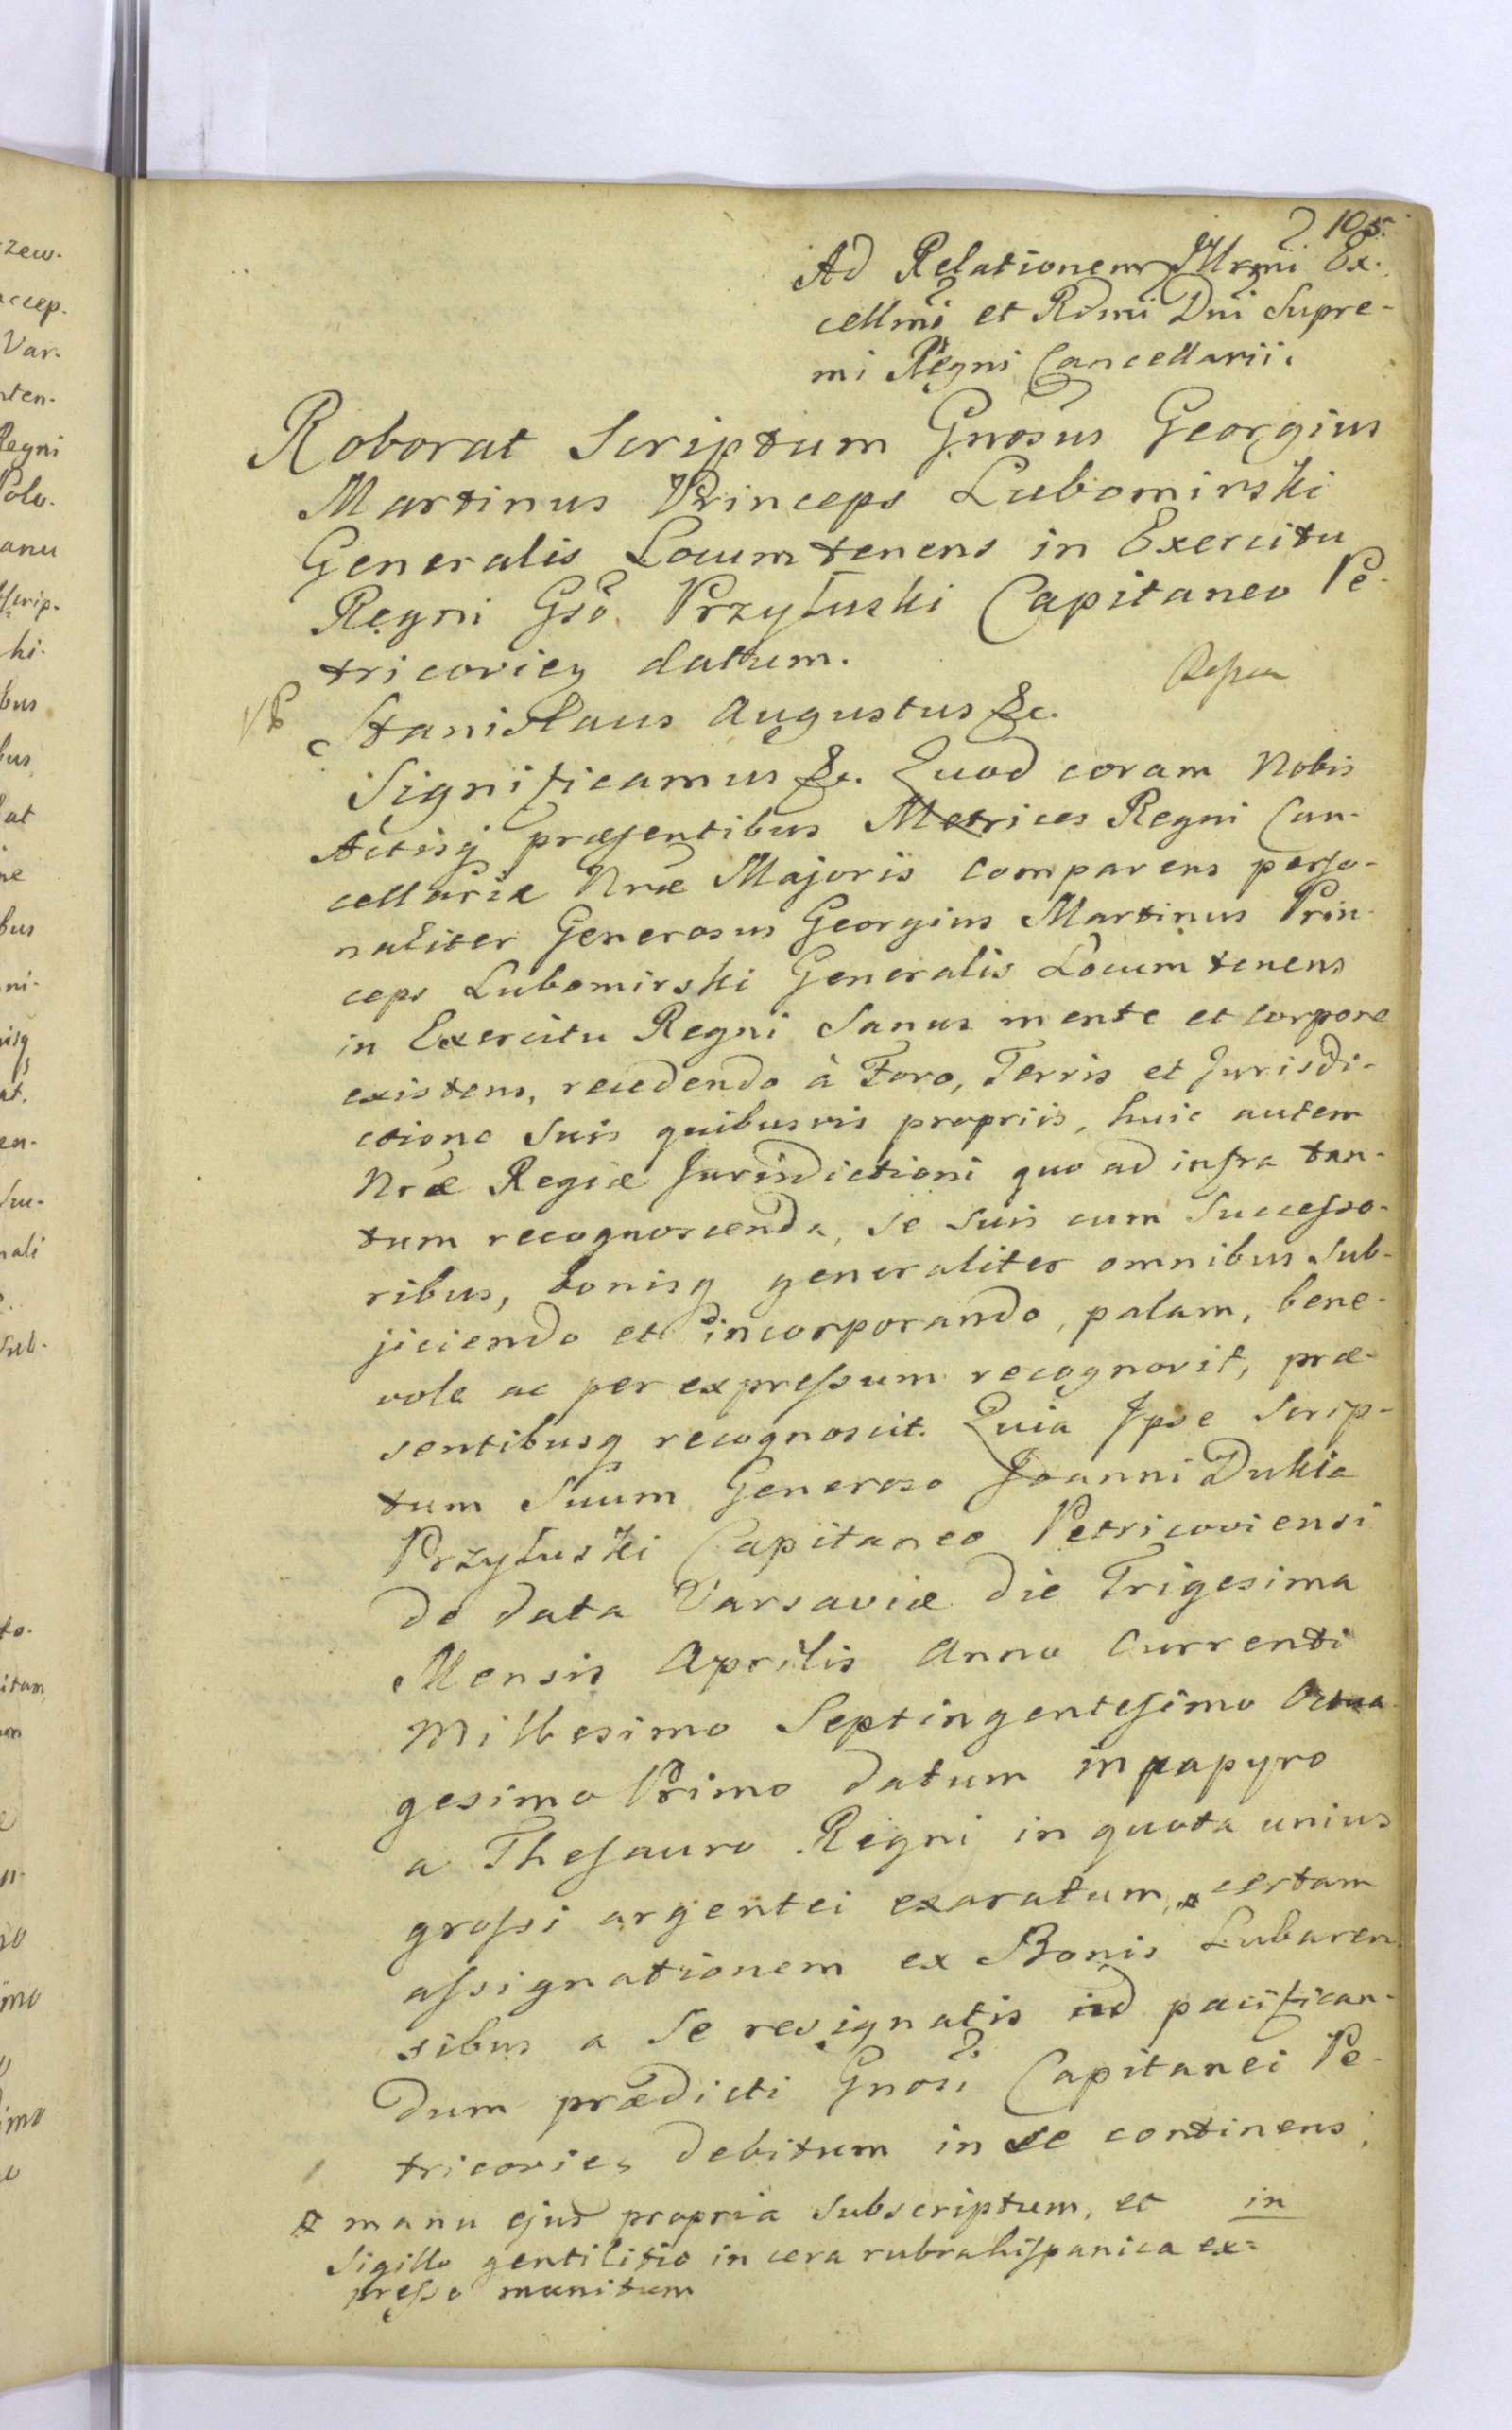 105.
Ad Relationem Illrmi Ex-
cellmi et Rdmi Dni Supre-
mi Regni Cancellarii.
Roborat Scriptum Gnosus Georgius
Martinus Princeps Lubomirski
Generalis Locumtenens in Exercitu
Regni Gso Przyłuski Capitaneo Pe-
tricovien datum.
Stanislaus Augustus &c.
Significamus &c. Quod coram Nobis
Actisq præsentibus Metrices Regni Can-
cellariæ Nræ Majoris comparens perso-
naliter Generosus Georgius Martinus Prin-
ceps Lubomirski Generalis Locum tenens
in Exercitu Regni Sanus mente et corpore
existens, recedendo à Foro, Terris et Jurisdi-
ctione Suis quibusvis propriis, huic autem
Nræ Regiæ Jurisdictioni quo ad infra tan-
tum recognoscenda, se suis cum Successo-
ribus, bonisq generaliter omnibus Sub-
jiciendo et incorporando, palam, bene-
vole ac per expressum recognovit, præ-
sentibusq recognoscit. Quia Ipse Scrip-
tum Suum Generoso Joanni Dukla
Przyłuski Capitaneo Petricoviensi
de data Varsaviæ die Trigesima
Mensis Aprilis Anno Currenti
Millesimo Septingentesimo Octua-
gesimo Primo datum in papyro
a Thesauro Regni in quota unius
grossi argentei exaratum, certam
assignationem ex Bonis Lubaren-
sibus a Se resignatis ad pacifican-
dum prædicti Gnosi Capitanei Pe-
tricovien debitum in se continens,
manu ejus propria subscriptum, et in
Sigillo gentilitio in cera rubra hispanica ex=
presso munitum